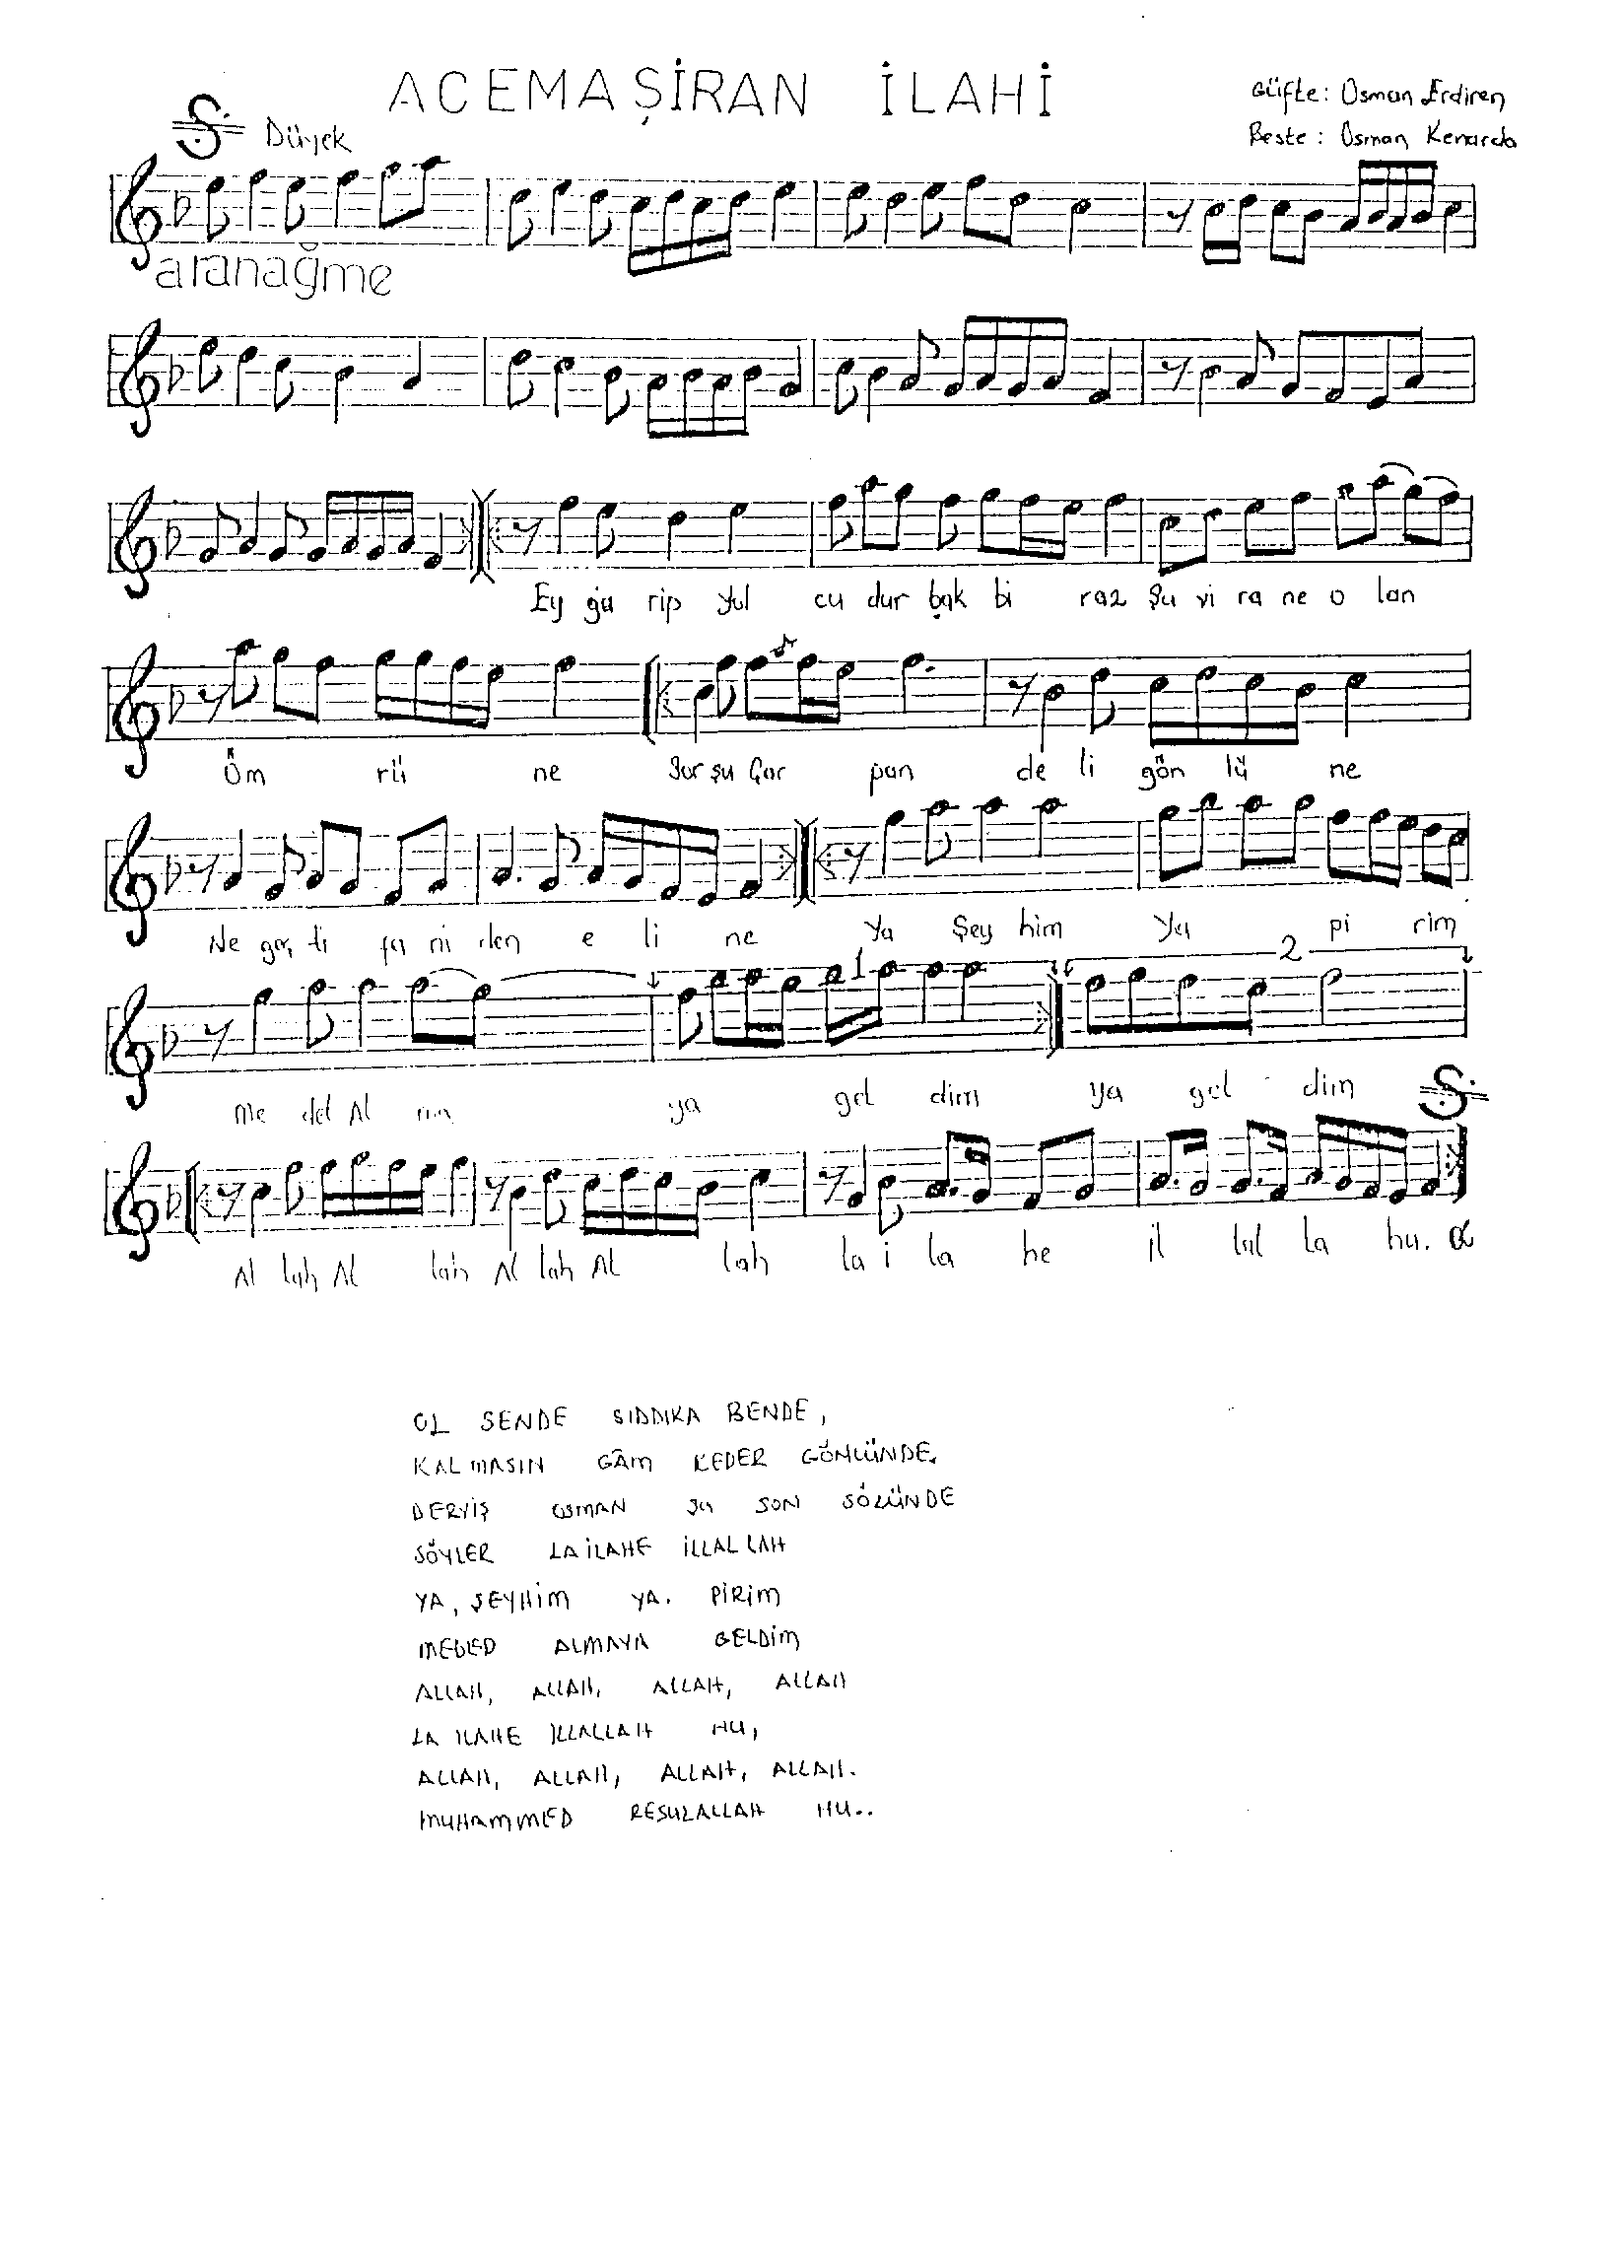 ACEMAŞİRAN İLAHİ
Güfte: Osman Erdiren
Düyek
Beste: Osman Kenarda
aranağme
Ey ga rip yol cu dur bak bi raz Şu vi ra ne o lan
Öm rü ne şu Çar pan de li gön lü ne
Ne geç ti fa ni den e li ne Ya Şey him Ya pi rim
2
1
me det Al ma ya gel dim ya gel dim
Al lah Al lah Al lah Al lah la i la he il lal la hu.
OL SENDE SIDDIKA BENDE,
KALMASIN GÂM KEDER GÖNLÜNDE.
DERVİŞ OSMAN ŞU SON SÖZÜNDE
SÖYLER LAİLAHE İLLALLAH
YA, ŞEYHİM YA. PİRİM
MEDED ALMAYA GELDİM
ALLAH, ALLAH, ALLAH, ALLAH
LA ILAHE ILLALLAH HU,
ALLAH, ALLAH, ALLAH, ALLAH.
MUHAMMED RESULALLAH HU..